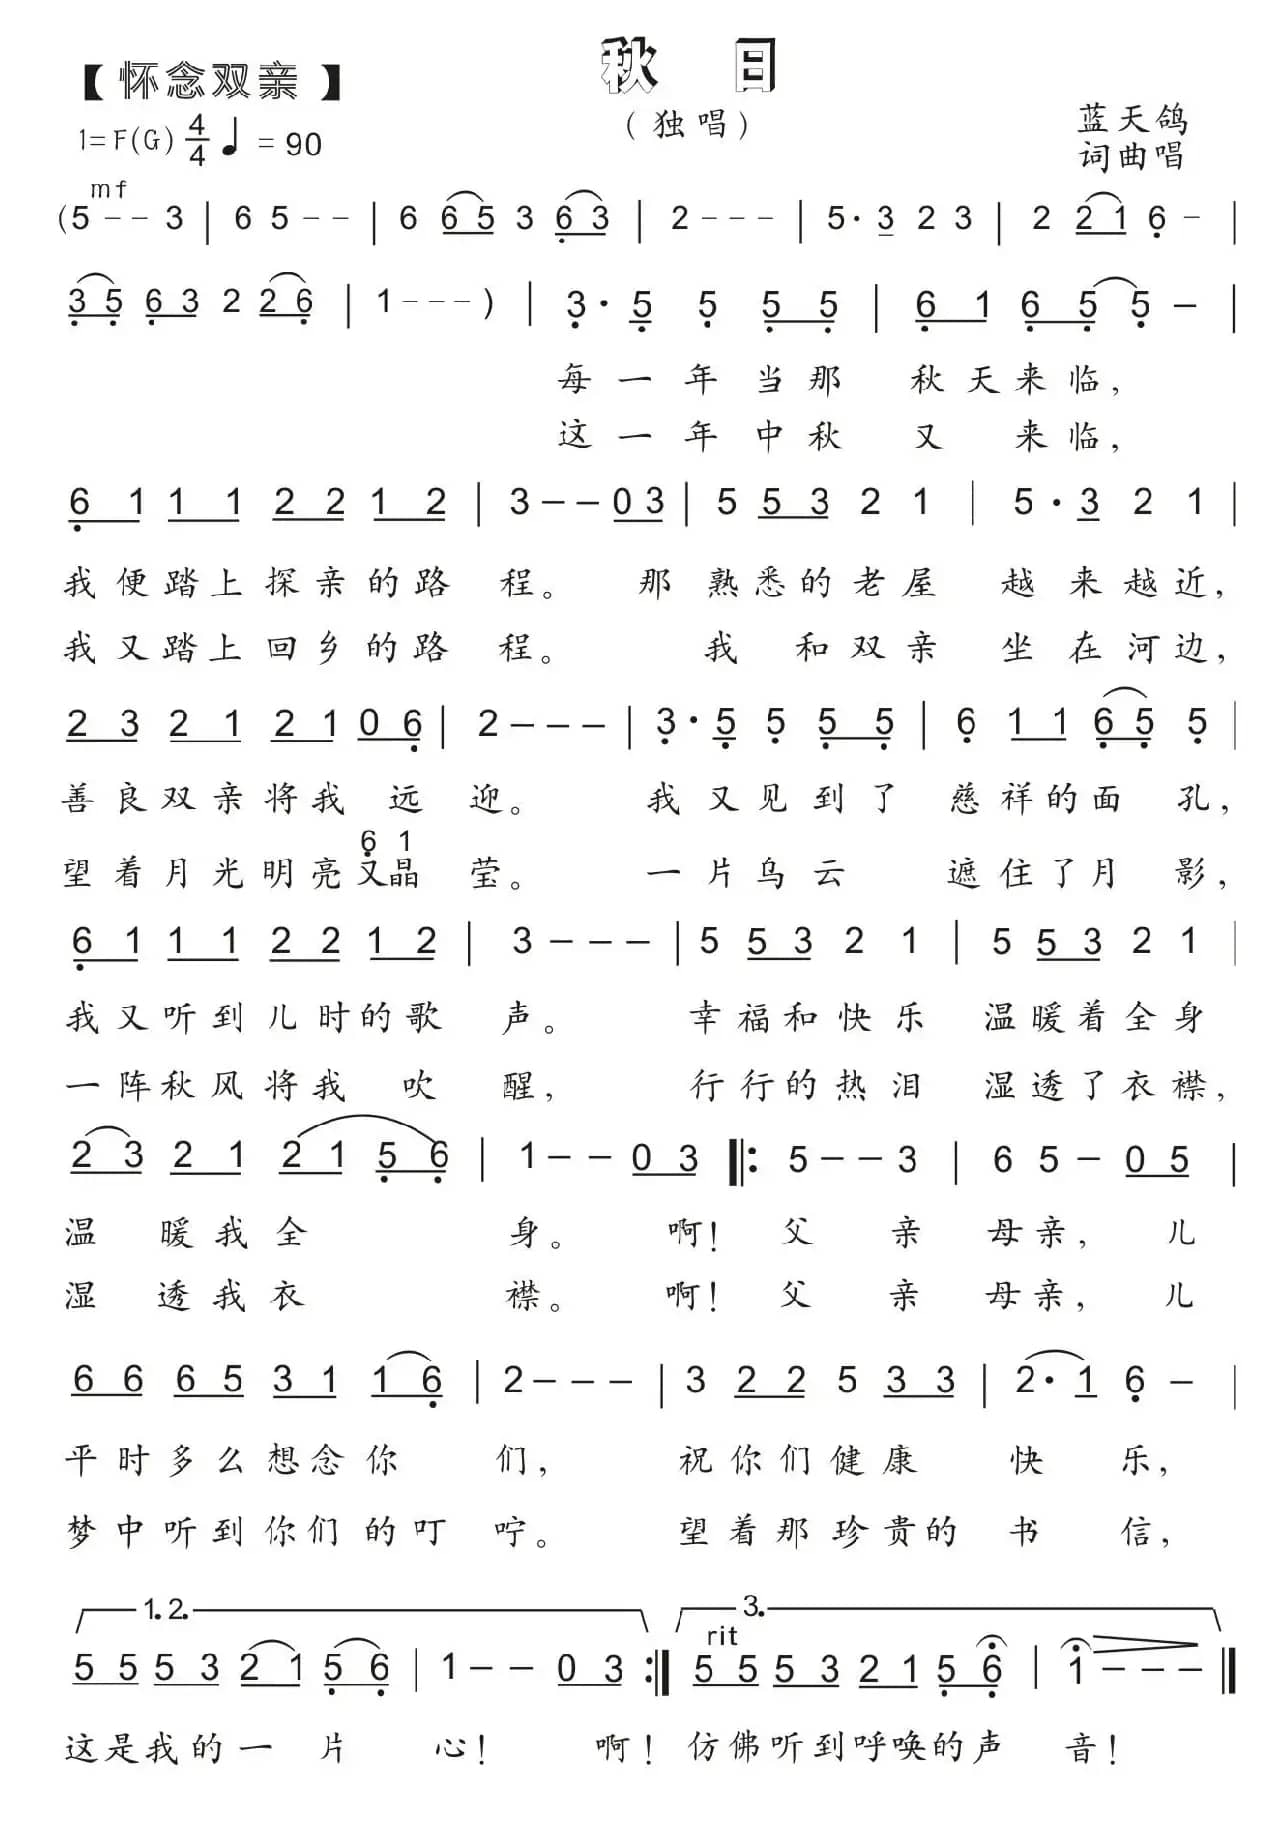 秋 日
【怀念双亲】
（独唱）
1=F(G) 4/4 ♩=90
蓝天鸽
词曲唱
mf
(5 - - 3 | 6 5 - - | 6 6 5 3 6 3 | 2 - - - | 5· 3 2 3 | 2 2 1 6 - |
3 5 6 3 2 2 6 | 1 - - - ) | 3· 5 5 5 5 | 6 1 6 5 5 - |
每一年当那 秋天来临，
这一年中秋 又 来临，
6 1 1 1 2 2 1 2 | 3 - - 0 3 | 5 5 3 2 1 | 5· 3 2 1 |
我便踏上探亲的路 程。 那 熟悉的老屋 越来越近，
我又踏上回乡的路 程。 我 和双亲 坐在河边，
2 3 2 1 2 1 0 6 | 2 - - - | 3· 5 5 5 5 | 6 1 1 6 5 5 |
善良双亲将我 远 迎。 我又见到了 慈祥的面 孔，
6 1
望着月光明亮又晶 莹。 一片乌云 遮住了月 影，
6 1 1 1 2 2 1 2 | 3 - - - | 5 5 3 2 1 | 5 5 3 2 1 |
我又听到儿时的歌 声。 幸福和快乐 温暖着全身
一阵秋风将我 吹 醒， 行行的热泪 湿透了衣襟，
2 3 2 1 2 1 5 6 | 1 - - 0 3 ‖: 5 - - 3 | 6 5 - 0 5 |
温 暖我全 身。 啊！ 父 亲 母亲， 儿
湿 透我衣 襟。 啊！ 父 亲 母亲， 儿
6 6 6 5 3 1 1 6 | 2 - - - | 3 2 2 5 3 3 | 2· 1 6 - |
平时多么想念你 们， 祝你们健康 快 乐，
梦中听到你们的叮 咛。 望着那珍贵的 书 信，
1. 2. 3.
rit
5 5 5 3 2 1 5 6 | 1 - - 0 3 :‖ 5 5 5 3 2 1 5 6 | 1 - - - ‖
这是我的一 片 心！ 啊！ 仿佛听到呼唤的声 音！